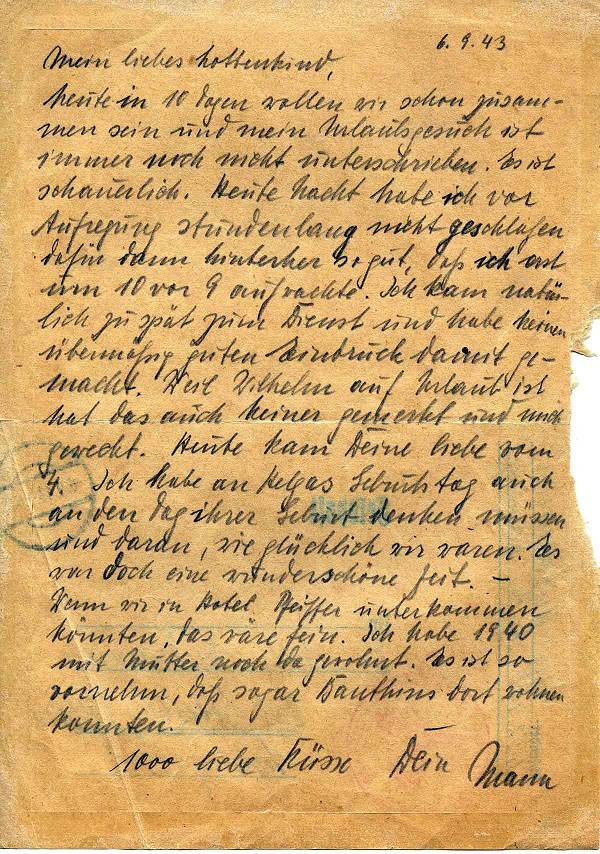 6.9.43
Mein liebes Lottenkind,
heute in 10 Tagen wollen wir schon zusam-
men sein und mein Urlaubsgesuch ist
immer noch nicht unterschrieben. Es ist
schauerlich. Heute Nacht habe ich vor
Aufregung stundenlang nicht geschlafen
dafür dann hinterher so gut, daß ich erst
um 10 vor 9 aufwachte. Ich kam natür-
lich zu spät zum Dienst und habe keinen
übermäßig guten Eindruck damit ge-
macht. Weil Wilhelm auf Urlaub ist
hat das auch keiner gemerkt und mich
geweckt. Heute kam Deine liebe vom
4. Ich habe an Helgas Geburtstag auch
an den Tag ihrer Geburt denken müssen
und daran, wie glücklich wir waren. Es
war doch eine wunderschöne Zeit. –
Wenn wir in Hotel Pfeiffer unterkommen
könnten, das wäre fein. Ich habe 1940
mit Mutter noch da gewohnt. Es ist so
vornehm, daß sogar Bauthins dort wohnen
konnten.
1000 liebe Küsse Dein Mann